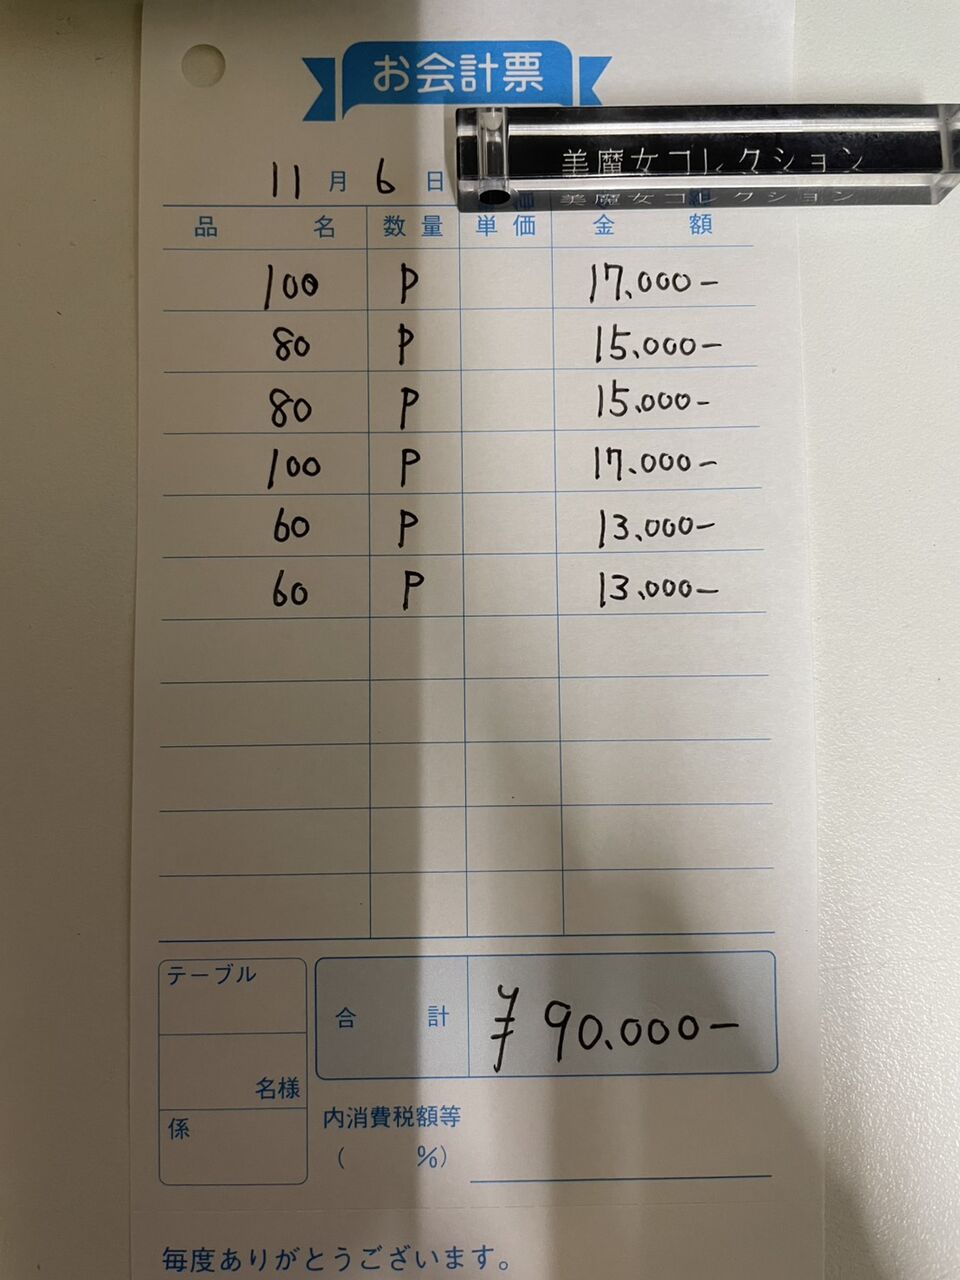 お会計票
美魔女コレクション
美魔女コレクション
11月6日
品名 数量 単価 金額
100 P 17,000-
80 P 15,000-
80 P 15,000-
100 P 17,000-
60 P 13,000-
60 P 13,000-
テーブル
合計 ¥90,000-
名様
係
内消費税額等
( %)
毎度ありがとうございます。